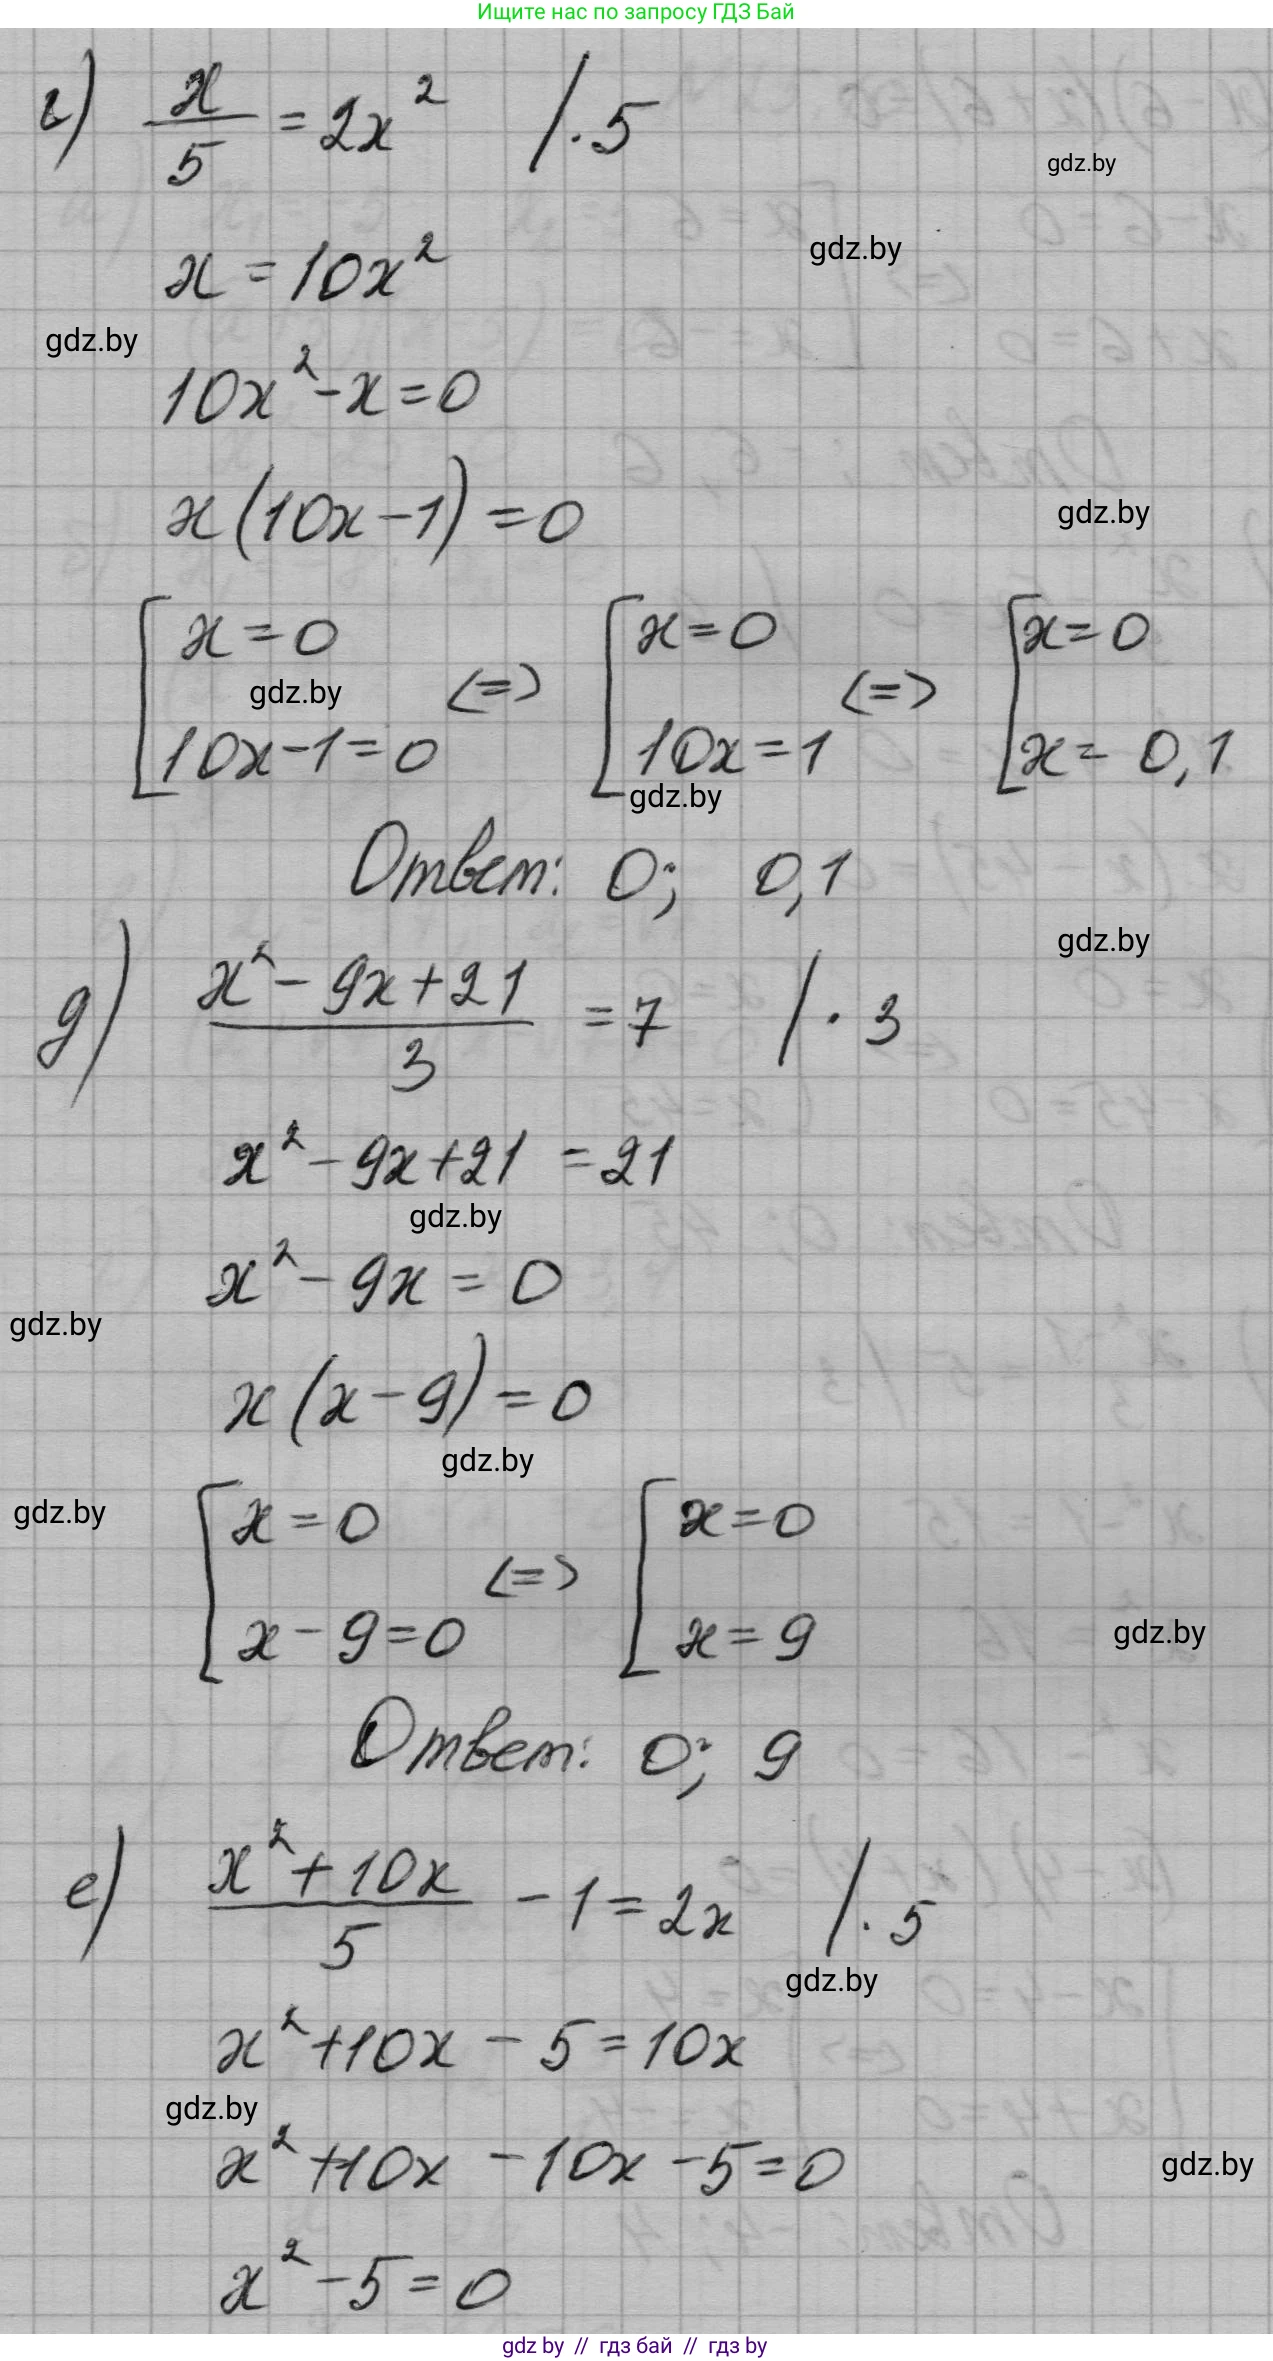 Ищите нас по запросу ГДЗ Бай
г) x/5 = 2x² /·5
gdz.by
gdz.by
x = 10x²
gdz.by
10x² - x = 0
x(10x - 1) = 0
gdz.by
[x = 0 <=> [x = 0 <=> [x = 0
gdz.by
10x - 1 = 0 10x = 1 x = 0,1
gdz.by
Ответ: 0; 0,1
gdz.by
д) x² - 9x + 21 / 3 = 7 /·3
x² - 9x + 21 = 21
gdz.by
x² - 9x = 0
gdz.by
x(x - 9) = 0
gdz.by
gdz.by
[x = 0 <=> [x = 0
x - 9 = 0 x = 9
gdz.by
Ответ: 0; 9
е) x² + 10x / 5 - 1 = 2x /·5
gdz.by
x² + 10x - 5 = 10x
gdz.by
x² + 10x - 10x - 5 = 0
gdz.by
x² - 5 = 0
gdz by // гдз бай // гдз by